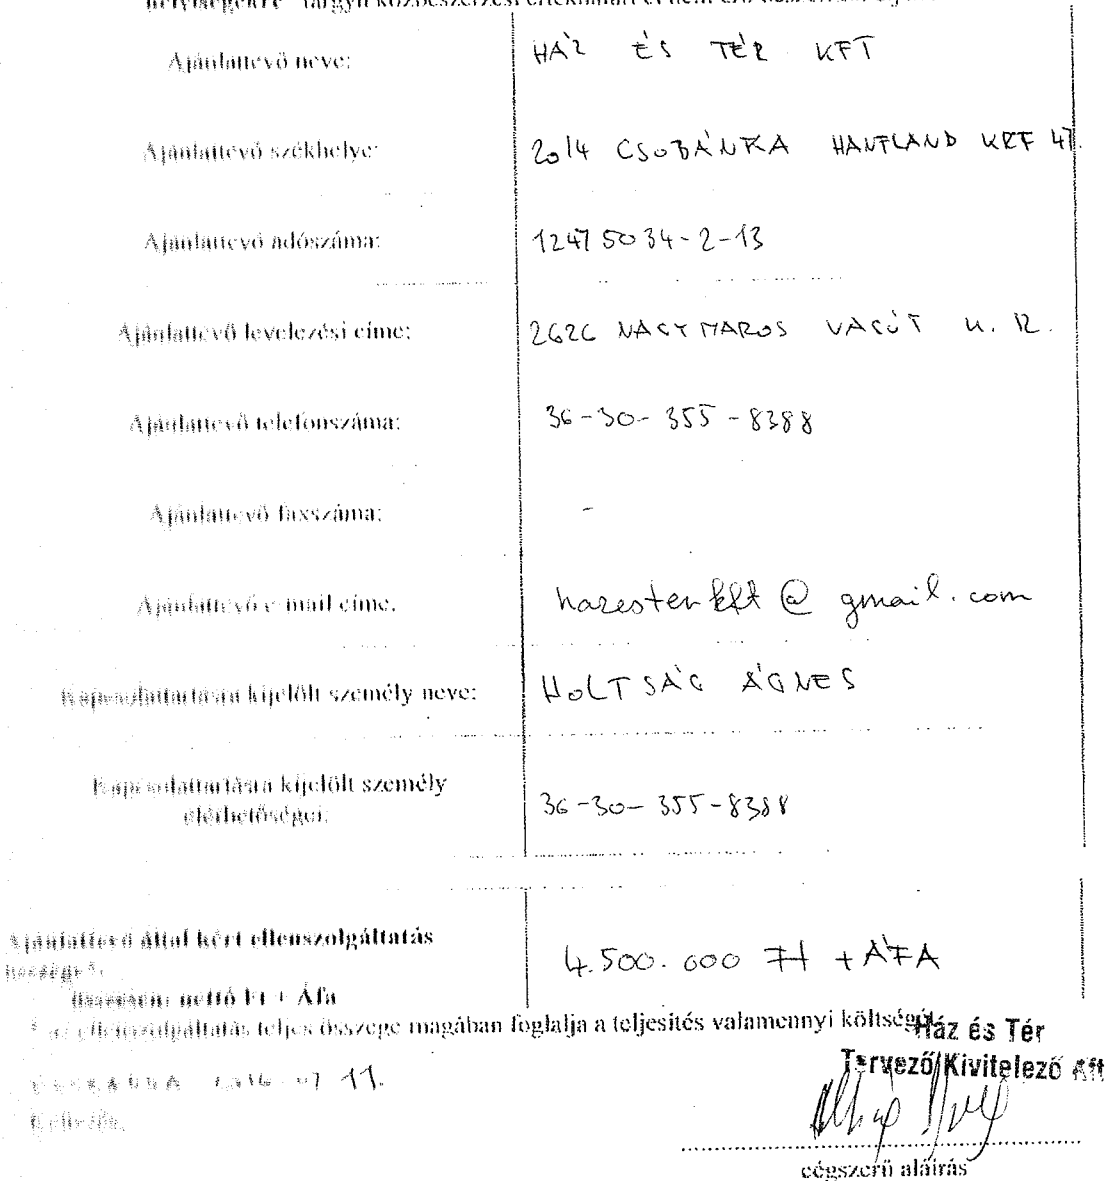 helyiségekre" tárgyú közbeszerzési értékhatárt el nem érő
Ajánlattevő neve: HÁZ ÉS TÉR KFT
Ajánlattevő székhelye: 2014 CSOBÁNKA HANFLAND KRF 47.
Ajánlattevő adószáma: 12475034-2-13
Ajánlattevő levelezési címe: 2626 NAGYMAROS VASÚT U. 12.
Ajánlattevő telefonszáma: 36-30-355-8388
Ajánlattevő faxszáma: -
Ajánlattevő e-mail címe: hazesterkft@gmail.com
Kapcsolattartásra kijelölt személy neve: HOLTSÁG ÁGNES
Kapcsolattartásra kijelölt személy
elérhetőségei: 36-30-355-8388
Ajánlattevő által kért ellenszolgáltatás
összege*:
4.500.000 Ft + ÁFA
összesen: nettó Ft + Áfa
* az ellenszolgáltatás teljes összege magában foglalja a teljesítés valamennyi költségét.
Ház és Tér
Tervező Kivitelező Kft
11.
Keltezés,
cégszerű aláírás